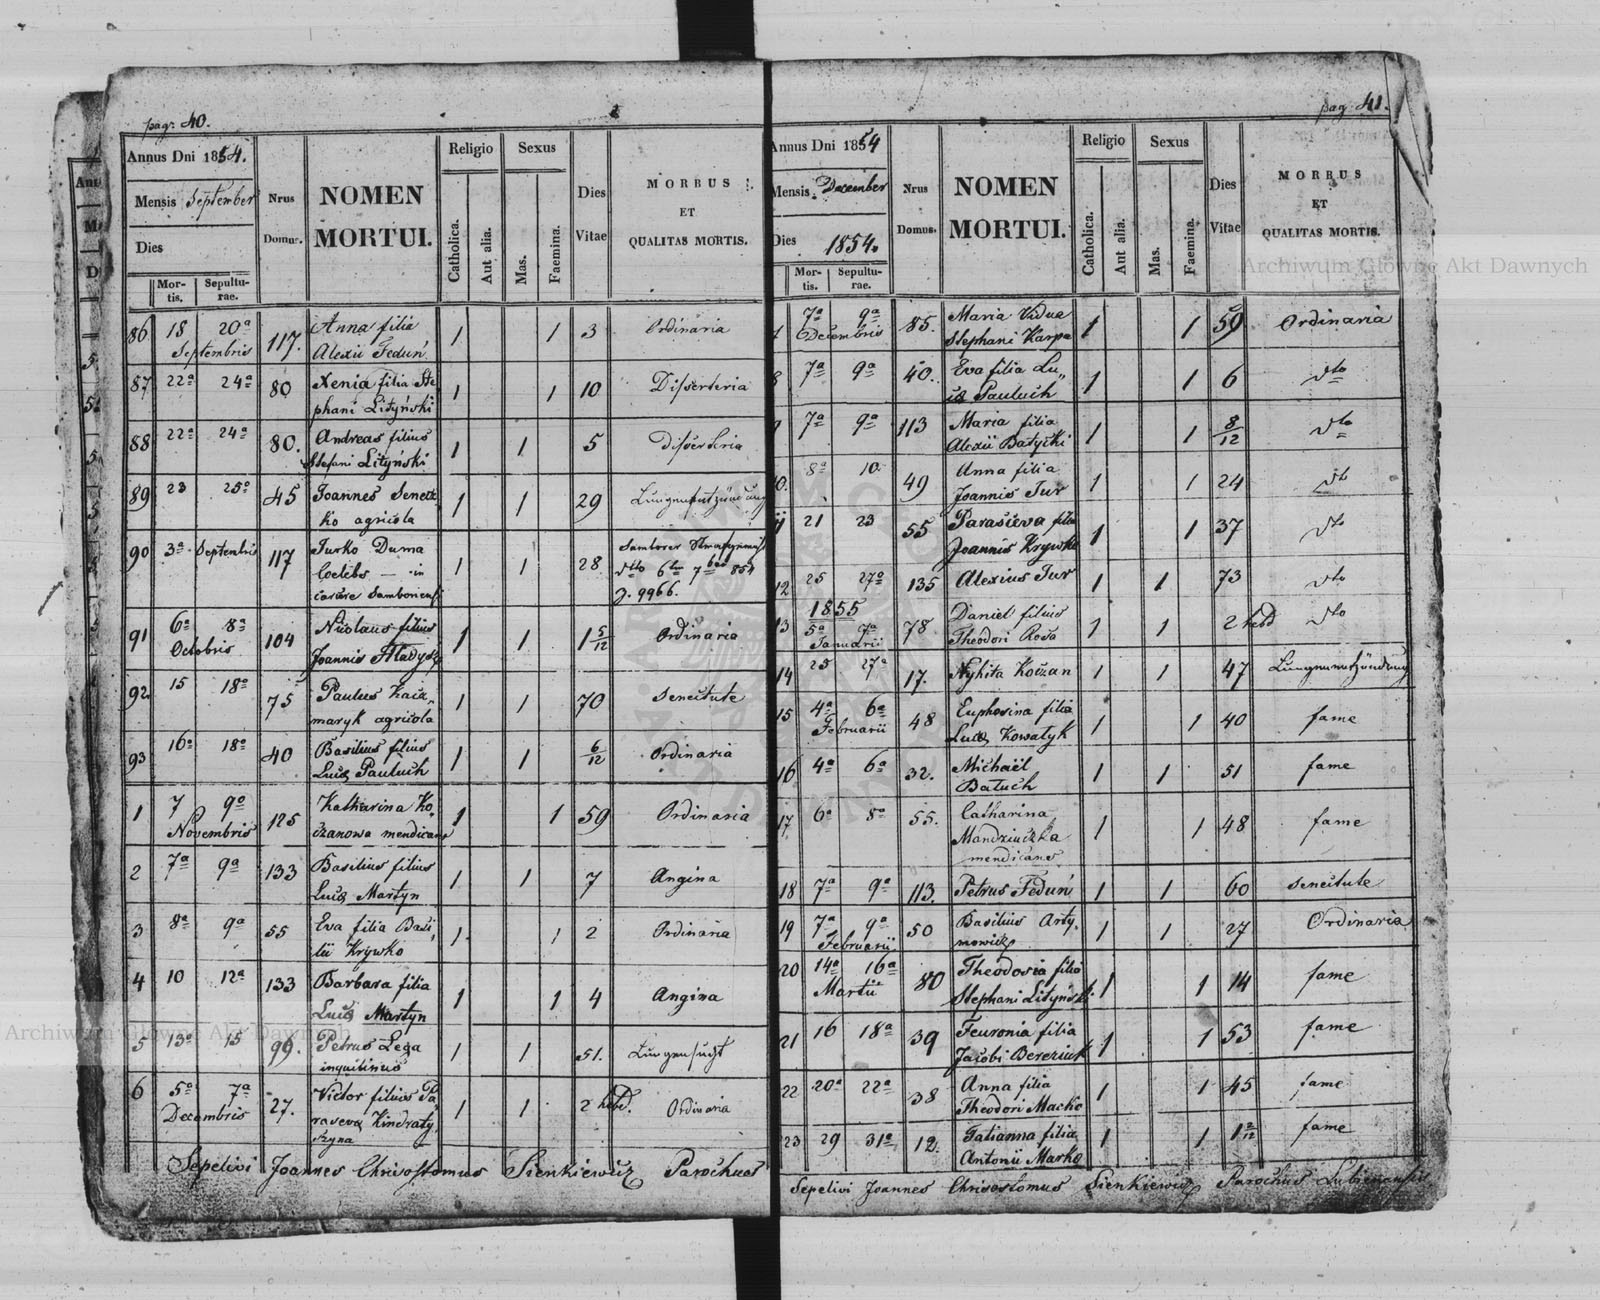 pag: 40.
Annus Dni 1854.
Mensis September
Dies
Mortis.
Sepulturae.
Nrus Domus.
NOMEN MORTUI.
Religio
Catholica.
Aut alia.
Sexus
Mas.
Faemina.
Dies Vitae
MORBUS ET QUALITAS MORTIS.
86 18 20a 117. Anna filia 1 1 3 Ordinaria
Septembris Alexii Feduń
87 22a 24a 80 Xenia filia Ste 1 1 10 Dissenteria
phani Lityński
88 22a 24a 80. Andreas filius 1 1 5 Dissenteria
Stefani Lityński
89 23 25a 45 Joannes Senet 1 1 29 Lungenentzündung
ko agricola
90 3a Septembris 117 Jurko Duma 1 1 28 Samborer
Coelebs — in dtto 6ten 7ber 854
carcere Samboriensi J. 9966.
91 6a 8a 104 Nicolaus filius 1 1 1 5/12 Ordinaria
Octobris Joannis Hladysz
92 15 18a 75 Paulus Kacz 1 1 70 Senectute
maryk agricola
93 16a 18a 40 Basilius filius 1 1 6/12 Ordinaria
Lucæ Pauluch
1 7 9a 125 Katharina Ko 1 1 59 Ordinaria
Novembris żanowa mendicans
2 7a 9a 133 Basilius filius 1 1 7 Angina
Lucæ Martyn
3 8a 9a 55 Eva filia Basi 1 1 2 Ordinaria
lii Krywko
4 10 12a 133 Barbara filia 1 1 4 Angina
Lucæ Martyn
5 13a 15 99. Petrus Lega 1 1 51. Lungensucht
inquilinus
6 5a 7a 27. Victor filius Pa 1 1 2 hebd. Ordinaria
Decembris rasevæ Kindraty
szyna
Sepelivi Joannes Chrisostomus Sienkiewicz Parochus
pag: 41.
Annus Dni 1854
Mensis December
Dies 1854.
Mortis.
Sepulturae.
Nrus Domus.
NOMEN MORTUI.
Religio
Catholica.
Aut alia.
Sexus
Mas.
Faemina.
Dies Vitae
MORBUS ET QUALITAS MORTIS.
7a 9a 85. Maria Vidua 1 1 59 Ordinaria
Decembris Stephani Karpa
8 7a 9a 40. Eva filia Lu 1 1 6 dto
cæ Pauluch
7a 9a 113 Maria filia 1 1 8/12 dto
Alexii Batycki
10. 8a 10 49 Anna filia 1 1 24 dto
Joannis Tur
11 21 23 55 Parasceva filia 1 1 37 dto
Joannis Krywko
12 25 27a 135 Alexius Tur 1 1 73 dto
1855
13 5a 7a 78 Daniel filius 1 1 2 hebd dto
Januarii Theodori Kosa
14 25 27a 17. Nykita Koczan 1 1 47 Lungenentzündung
15 4a 6a 48 Euphosina filia 1 1 40 fame
Februarii Lucæ Kowalyk
16 4a 6a 32. Michaël 1 1 51 fame
Batuch
17. 6a 8a 55. Catharina 1 1 48 fame
Mandziuczka
mendicans
18 7a 9a 113. Petrus Feduń 1 1 60 Senectute
19 7a 9a 50 Basilius Arty 1 1 27 Ordinaria
Februarii mowicz
20 14a 16a 80 Theodosia filia 1 1 14 fame
Martii Stephani Lityński
21 16 18a 39 Feuronia filia 1 1 53 fame
Jacobi Bereziuk
22 20a 22a 38 Anna filia 1 1 45 fame
Theodori Macko
23 29 31a 12. Tatianna filia 1 1 1 2/12 fame
Antonii Marko
Sepelivi Joannes Chrisostomus Sienkiewicz Parochus Lubienensis
Archiwum Główne Akt Dawnych
Archiwum Główne Akt Dawnych